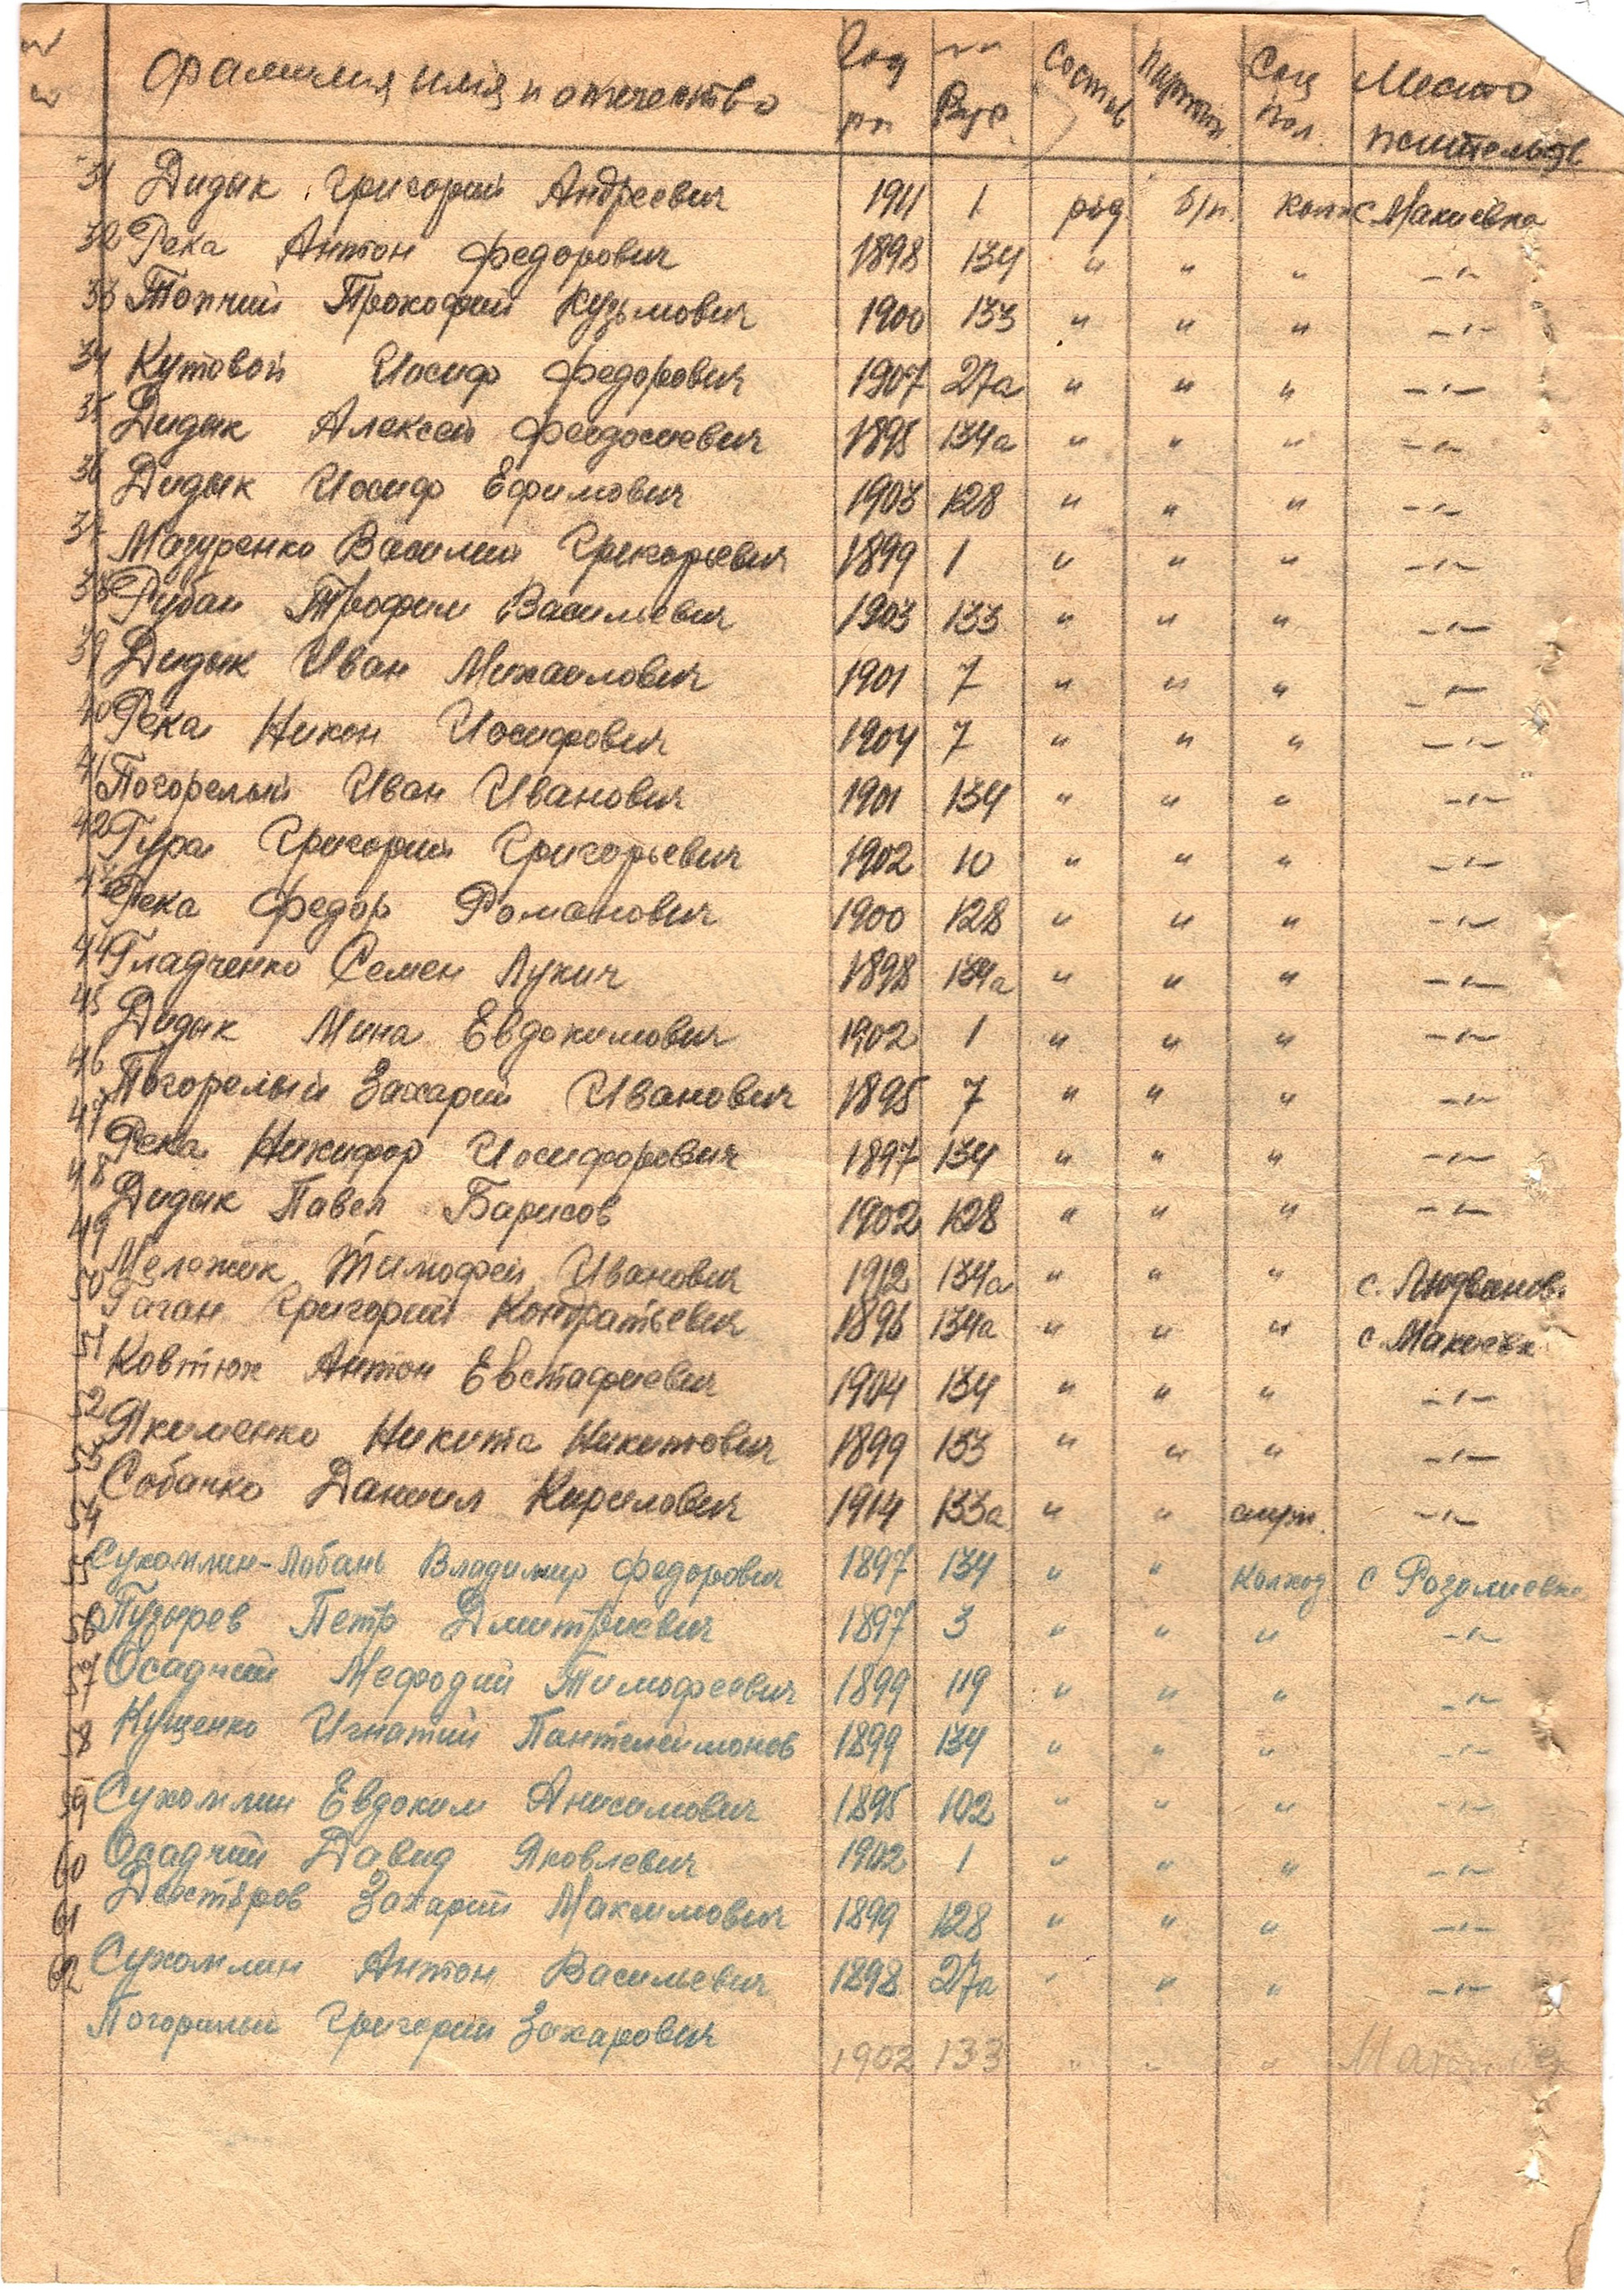 № № Фамилия имя и отчество Год рж №№ Вус Состав Партийн. Соц пол. Место жительств
31 Дидык Григорий Андреевич 1911 1 ряд б/п. колх с Макиевка
32 Река Антон Федорович 1898 134 " " " -"-
33 Топчий Прокофий Кузьмович 1900 133 " " " -"-
34 Кутовой Иосиф Федорович 1907 27а " " " -"-
35 Дидык Алексей Феодосиевич 1895 134а " " " -"-
36 Дидык Иосиф Ефимович 1903 128 " " " -"-
37 Мазуренко Василий Григорьевич 1899 1 " " " -"-
38 Рубан Трофим Васильевич 1903 133 " " " -"-
39 Дидык Иван Михайлович 1901 7 " " " -"-
40 Река Никон Иосифович 1904 7 " " " -"-
41 Погорелый Иван Иванович 1901 134 " " " -"-
42 Гура Григорий Григорьевич 1902 10 " " " -"-
43 Река Федор Романович 1900 128 " " " -"-
44 Гладченко Семен Лукич 1898 134а " " " -"-
45 Дидык Мина Евдокимович 1902 1 " " " -"-
46 Погорелый Захарий Иванович 1895 7 " " " -"-
47 Река Никифор Иосифорович 1897 134 " " " -"-
48 Дидык Павел Барисов 1902 128 " " " -"-
49 Мележик Тимофей Иванович 1912 134а " " " с.
50 Гаган Григорий Кондратьевич 1896 134а " " " с. Макиевк
51 Ковтюх Антон Евстафиевич 1904 134 " " " -"-
52 Якименко Никита Никитович 1899 133 " " " -"-
53 Собачко Даниил Кирилович 1914 133а " " служ. -"-
54 Сухомлин-Лобань Владимир Федорович 1897 134 " " Колход с Розалиевка
55 Пузырев Петр Дмитриевич 1897 3 " " " -"-
56 Осадчий Мефодий Тимофеевич 1899 119 " " " -"-
57 Куценко Игнатий Пантелеймонов 1899 134 " " " -"-
58 Сухомлин Евдоким Анисимович 1895 102 " " " -"-
59 Осадчий Давид Яковлевич 1902 1 " " " -"-
60 Захарий Максимович 1899 128 " " " -"-
61 Сухомлин Антон Васильевич 1898 27а " " " -"-
62 Погорилый Григорий Захарович 1902 133 " " "